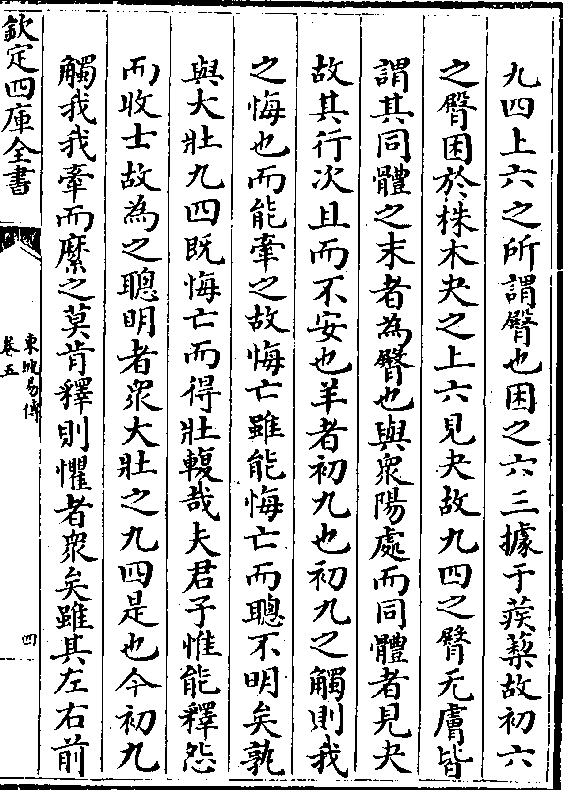 九四上六之所謂臀也困之六三據于蒺蔾故初六
之臀困於株木夬之上六見夬故九四之臀无膚皆
謂其同體之末者為臀也與衆陽處而同體者見夬
故其行次且而不安也羊者初九也初九之觸則我
之悔也而能牽之故悔亡雖能悔亡而聰不明矣孰
與大壯九四既悔亡而得壯輹哉夫君子惟能釋怨
而收士故為之聰明者衆大壯之九四是也今初九
觸我我牽而縻之莫肯釋則懼者衆矣雖其左右前
欽定四庫全書
東坡易傳
卷五
四